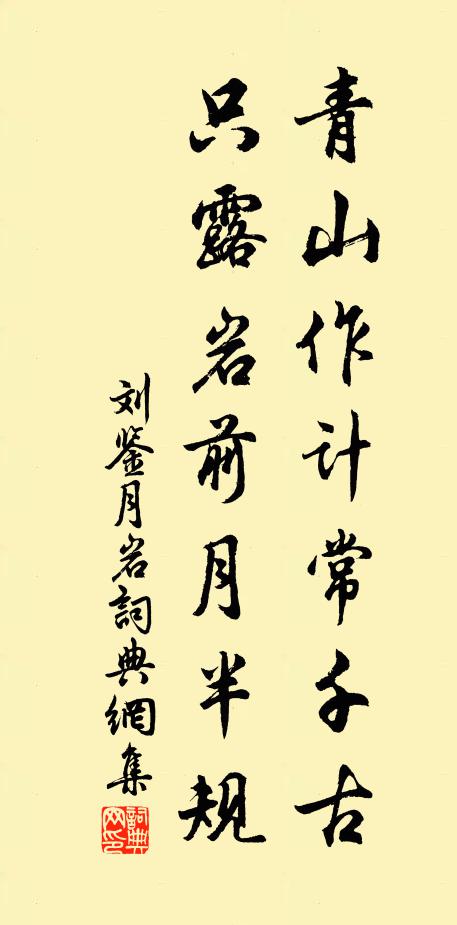 青山作计常千古
只露岩前月半规
刘鉴月岩詞典網集
詞典网印